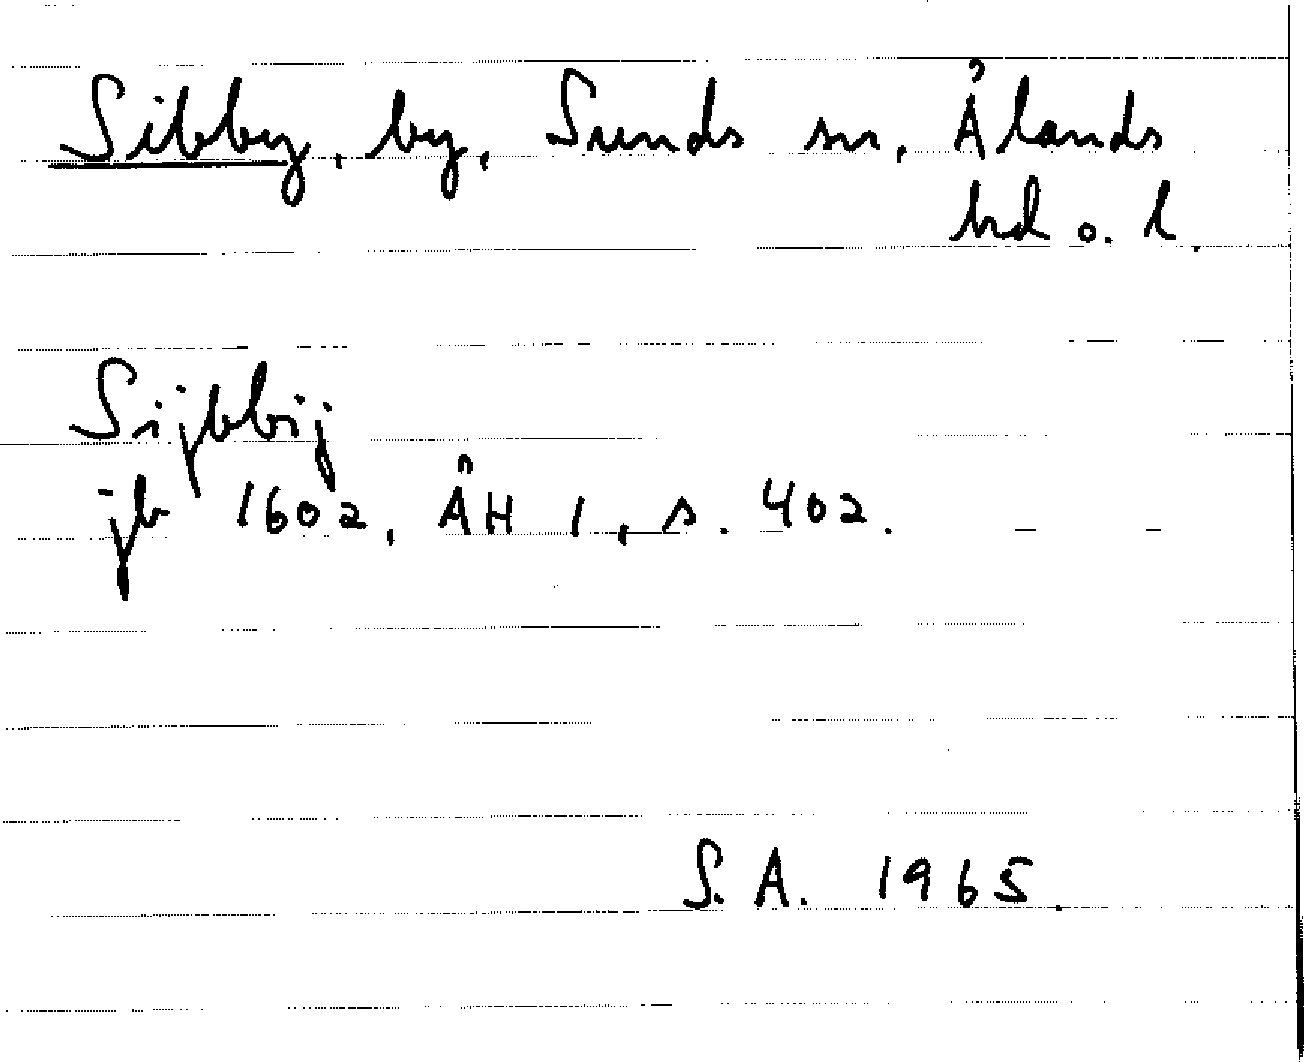 Sibby, by, Sunds sn, Ålands
hd o. l.
Sijbbij
jb 1602, ÅH 1, s. 402.
S. A. 1965.